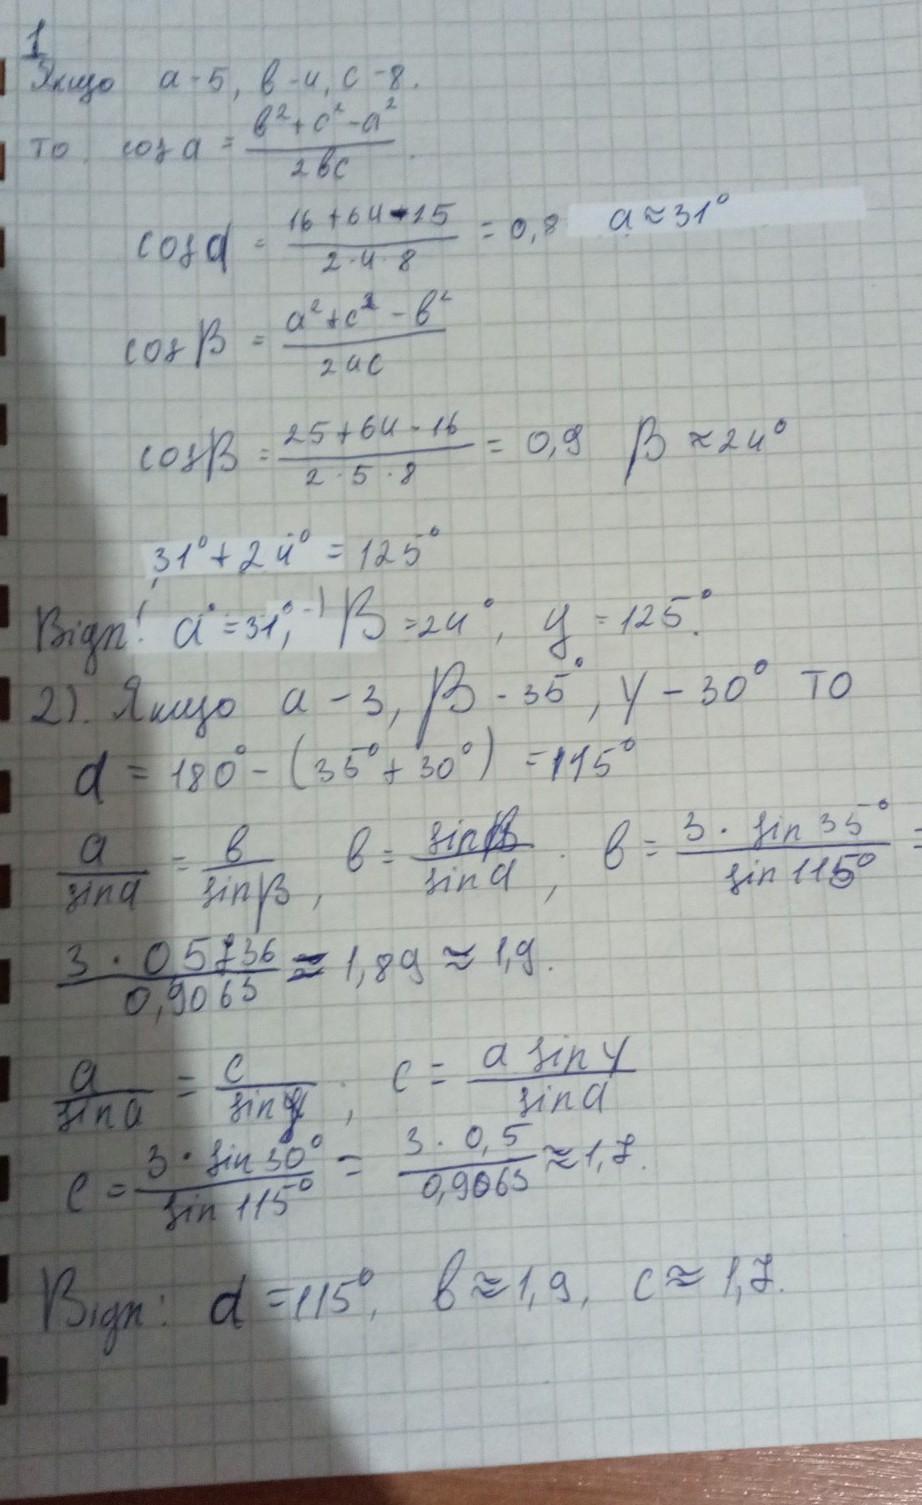 1
Якщо a-5, в-4, c-8.
то cos a = (в²+c²-a²)/(2вc).
cos α = (16+64-25)/(2·4·8) = 0,8 a≈31°
cos β = (a²+c²-в²)/(2ac)
cos β = (25+64-16)/(2·5·8) = 0,9 β≈24°
31°+24°=125°
Відп: a=31°, β=24°, y=125°.
2). Якщо a-3, β-35°, γ-30° то
d = 180°-(35°+30°)=115°
a/sin a = в/sin β, в = sin β/sin a; в = (3·sin 35°)/(sin 115°) =
(3·05736)/(0,9063) ≈ 1,89 ≈ 1,9.
a/sin a = c/sin y; c = (a sin y)/(sin a)
c = (3·sin 30°)/(sin 115°) = (3·0,5)/(0,9063) ≈ 1,7.
Відп: d=115°, в≈1,9, c≈1,7.